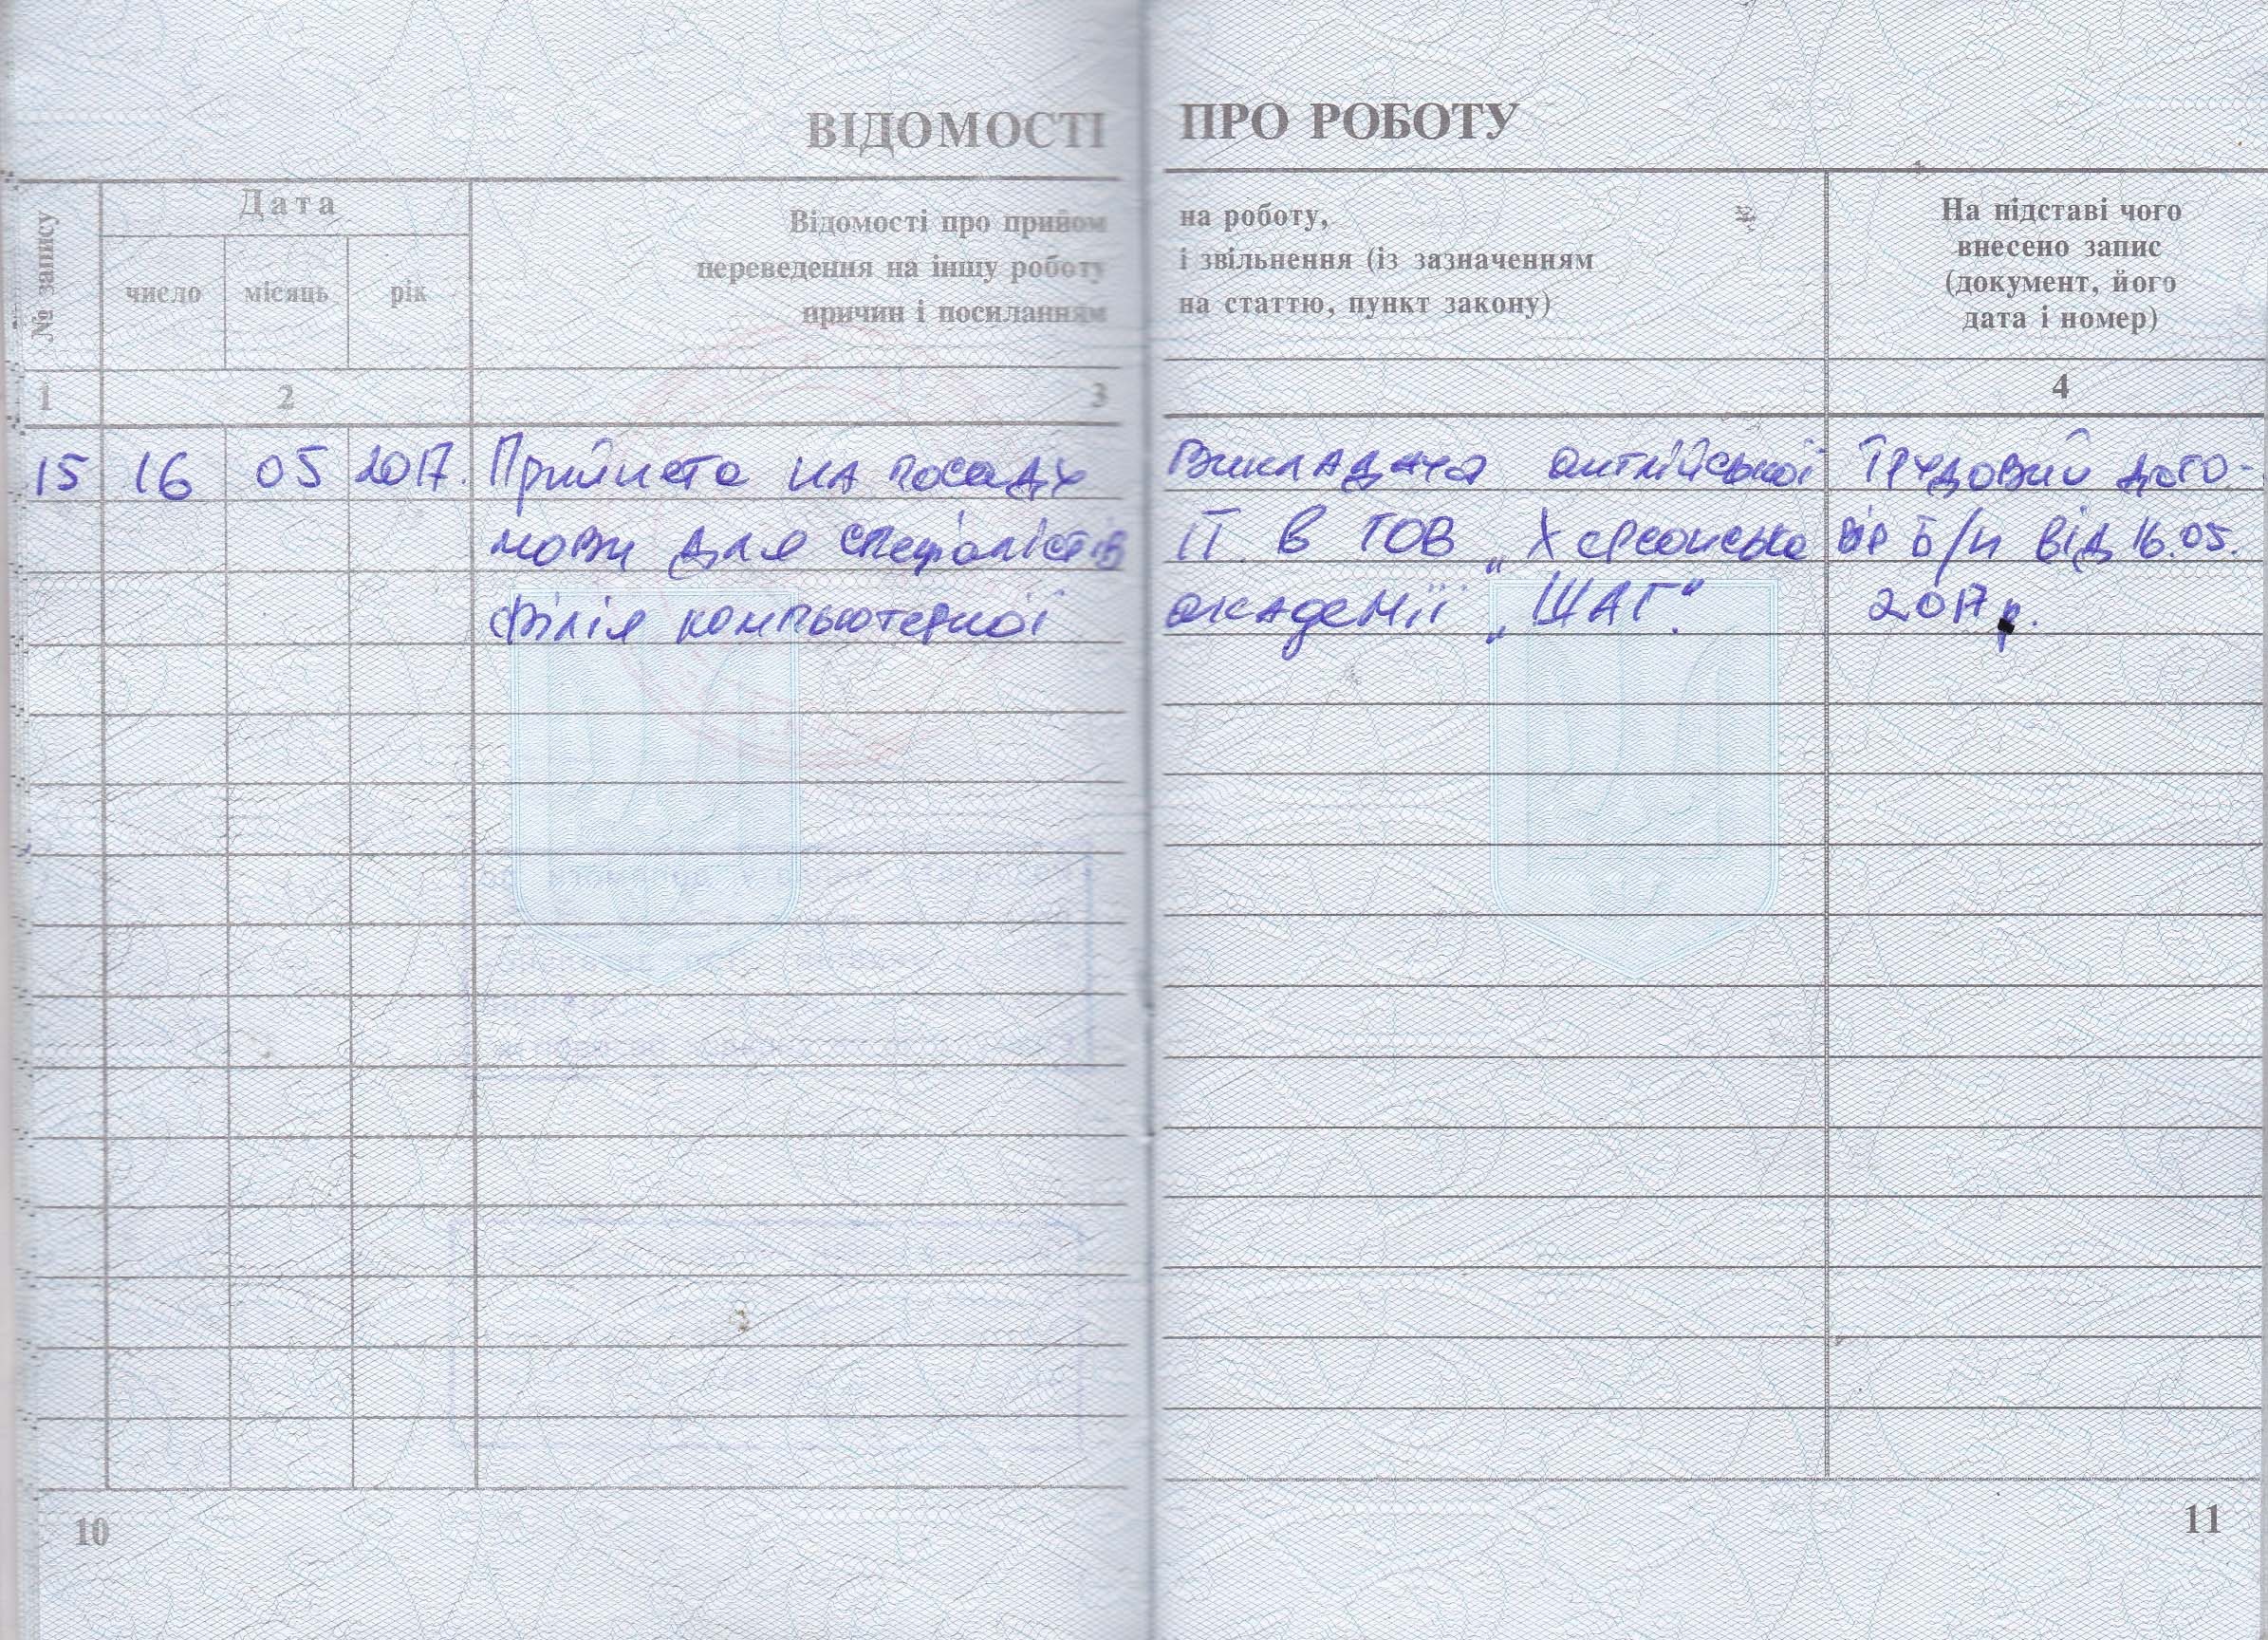 ВІДОМОСТІ ПРО РОБОТУ
№ запису
Дата
число місяць рік
Відомості про прийом на роботу,
переведення на іншу роботу і звільнення (із зазначенням
причин і посиланням на статтю, пункт закону)
На підставі чого
внесено запис
(документ, його
дата і номер)
1 2 3 4
15 16 05 2017. Прийнята на посаду викладача англійської Трудовий дого-
мови для спеціалістів ІТ в ТОВ „Херсонська вір б/н від 16.05.
філія компьютерної академії „ШАГ". 2017 р.
10 11